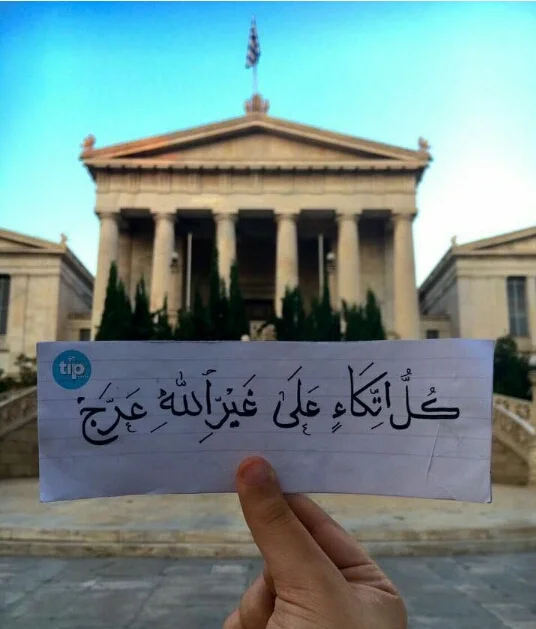 tip
كُلُّ اتِّكَاءٍ عَلَى غَيْرِ اللهِ عَرَجٌ